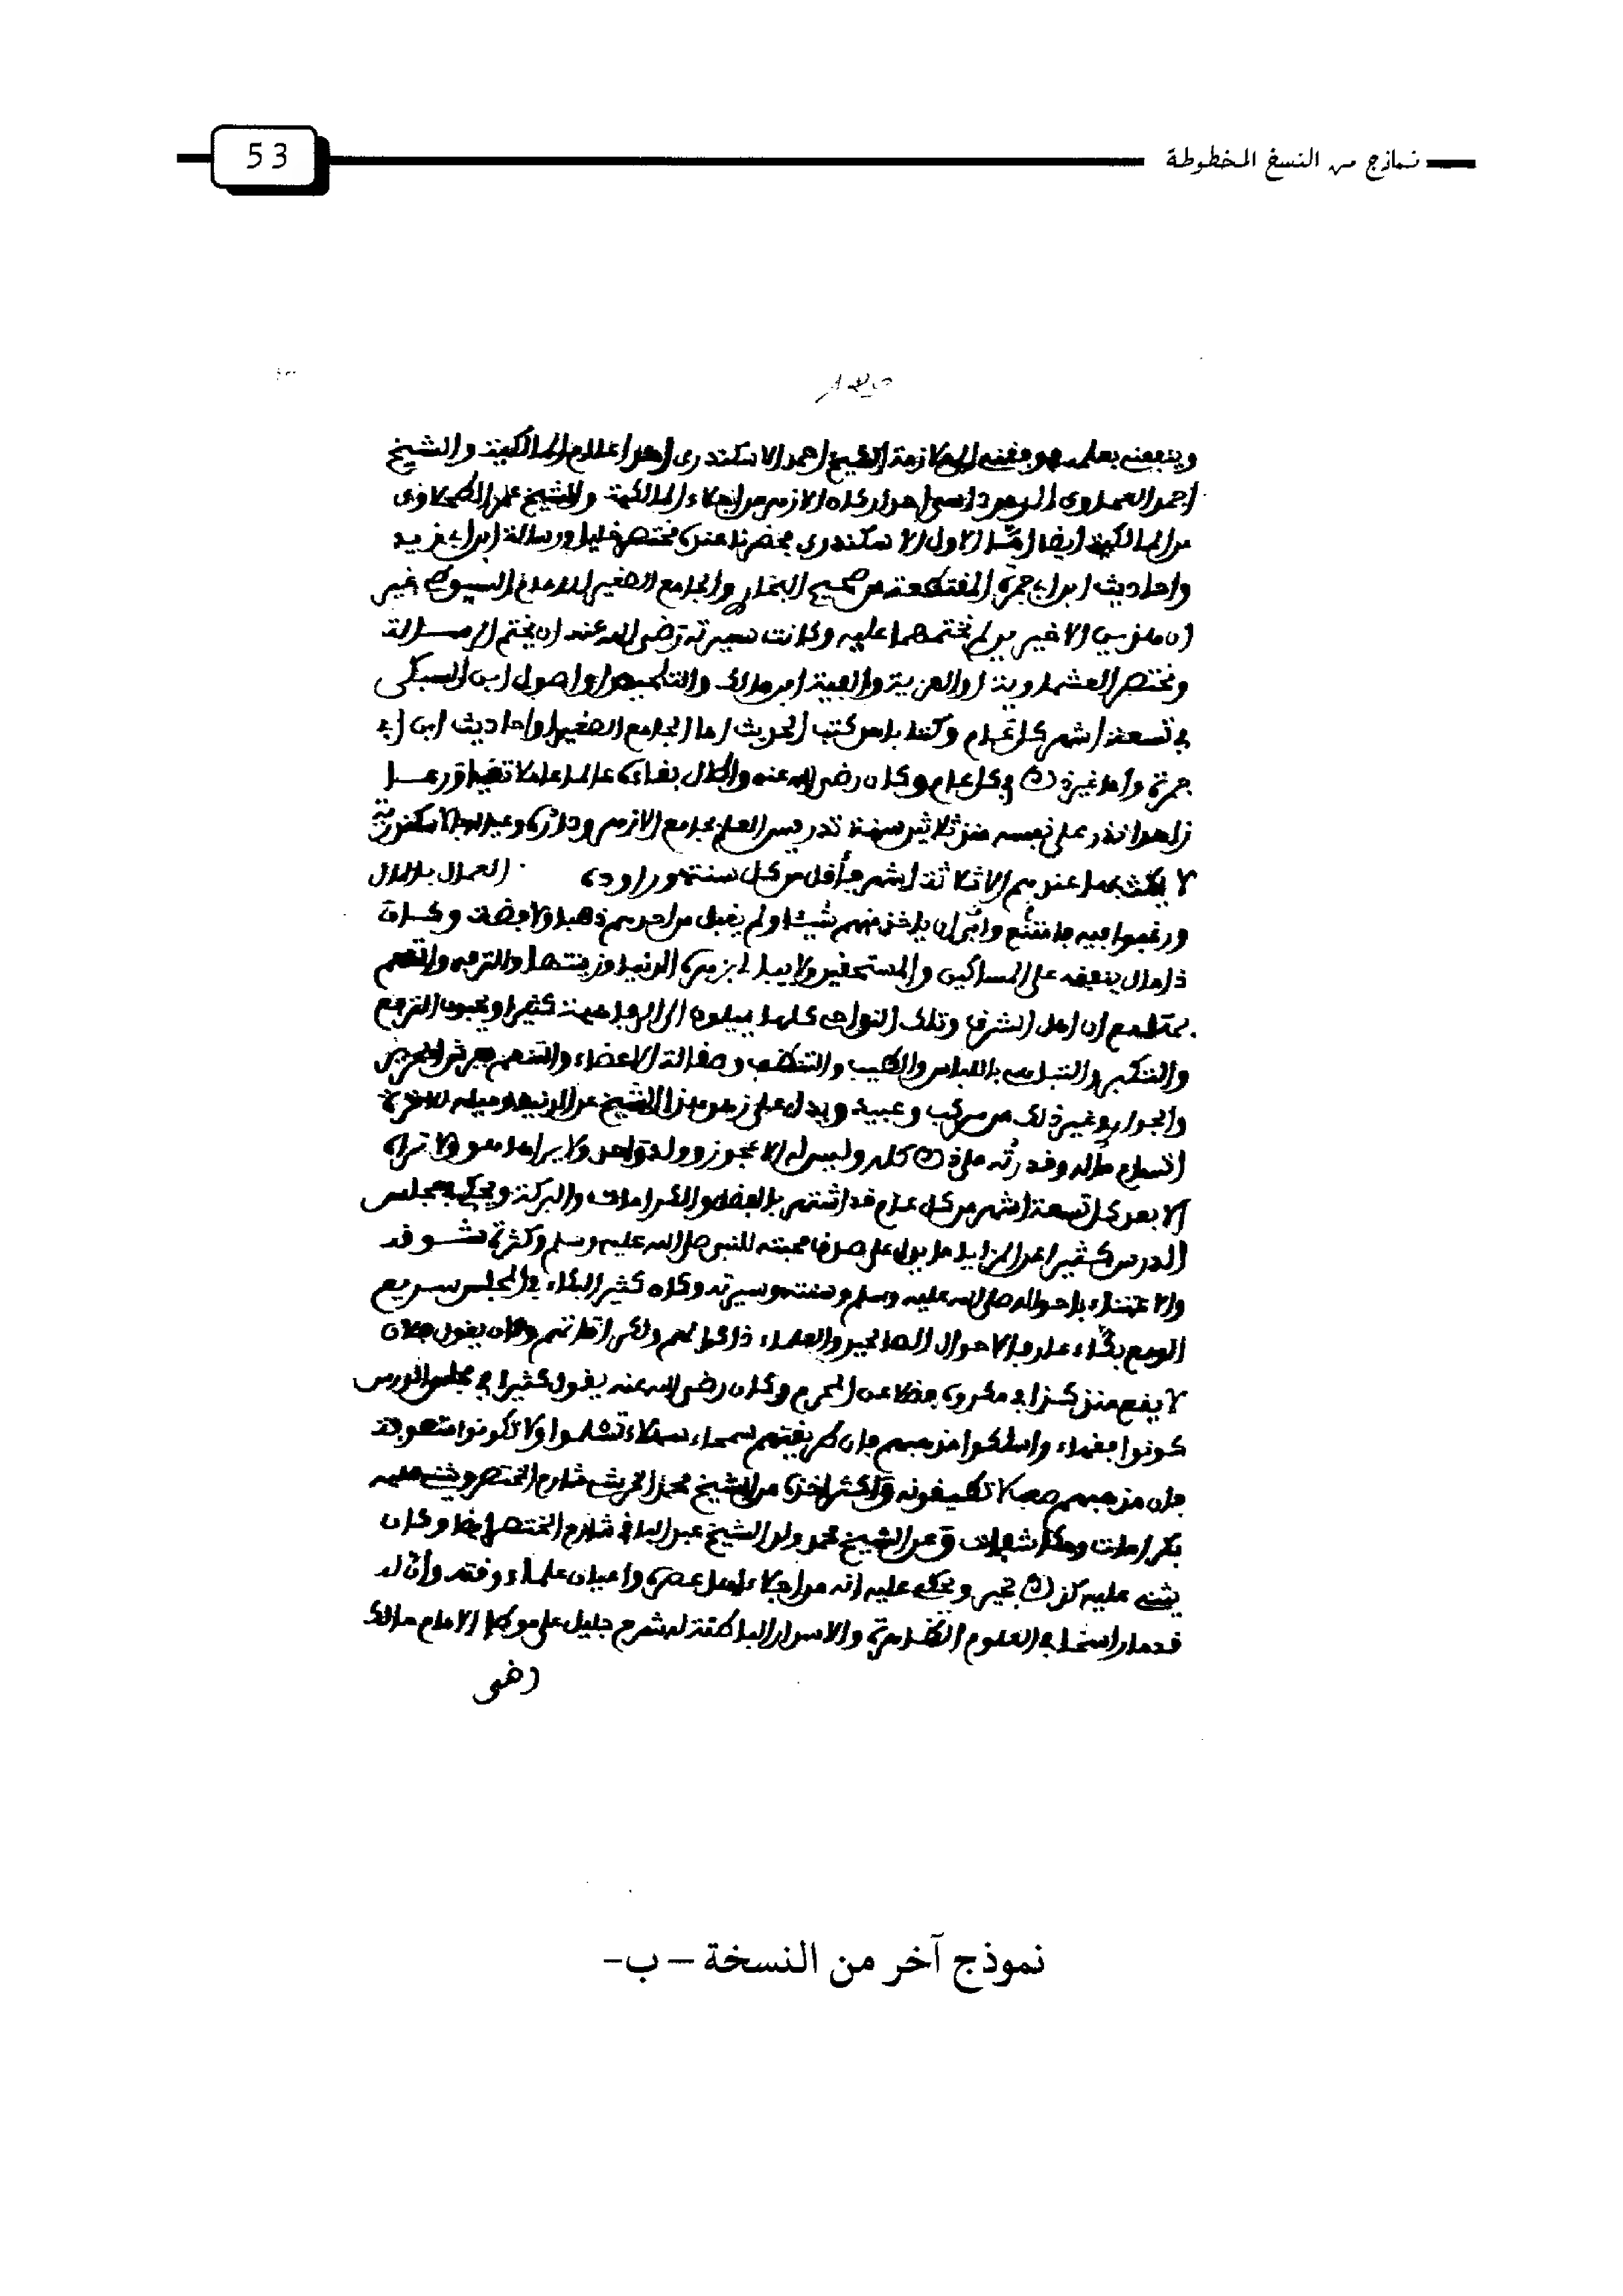 نماذج من النسخ المخطوطة
53
وينفعني بعلمه ووفقني الله لملازمة الشيخ أحمد الاسكندري أحد أعلام المالكية والشيخ
أحمد العماوي من أجلاء المالكية والشيخ علي
من المالكية أيضا أما الاول الاسكندري فحضرنا عنده مختصر خليل ورسالة ابن أبي زيد
وأحاديث ابن أبي جمرة المقتطعة من صحيح البخاري والجامع الصغير للامام السيوطي غير
أن هذين الاخيرين لم نختمهما عليه وكانت سيرته رضي الله عنه أن يختم الرسالة
ومختصر العشماوية والعزية وألفية ابن مالك والتلخيص وأصول ابن السبكي
في تسعة أشهر كل عام وكنا بدأ من كتب الحديث اما الجامع الصغير أو احاديث ابن أبي
جمرة وأما غيره في كل عام وكان رضي الله عنه وأطال بقاءه عالما عاملا تقيا ورعا
زاهدا نذر على نفسه منذ ثلاثين سنة تدريس العلم بجامع الازهر وداره وعياله بالاسكندرية
لا يمكث عندهم الا ثلاثة أشهر فأقل من كل سنة وراوده العمال بالمال
ورغبوا فيه فامتنع وأبى أن ياخذ منهم شيئا ولم يقبل من احدهم ذهبا ولا فضة وكان
ذا مال ينفقه على المساكين والمستحقين ولا يبالي بزهرة الدنيا وزينتها والترفه والتنعم
بمتاعها مع ان اهل الشرق وتلك النواحي كلها يميلون الى الرفاهية كثيرا ويحبون الترفع
والتكبر والتباهي باللباس والطيب والتنظف وصقالة الاعضاء والتنعم بفرش الحرير
والجوار وغير ذلك من مركب وعبيد ويدل على زهد هذا الشيخ عن الدنيا وميله للاخرة
اتساع ماله وقدرته على ذلك كله وليس له الا عجوز وولد واحد ولا يراها هو ولا تراه
الا بعد كل تسعة أشهر من كل عام قد اشتهر بالفضل والكرامات والبركة ويحكي بمجلس
الدرس كثيرا من المزايا ما يدل على صدق محبته للنبي صلى الله عليه وسلم وكثرة تشوقه
والاعتناء باحواله صلى الله عليه وسلم وسنته وسيرته وكان كثير البكاء في المجلس سريع
الدمع بكاء عارفا لاحوال الصالحين والعلماء ذاكرا لهم وكان يقول فلان
لا يقع منذ كذا في مكروه فضلا عن المحرم وكان رضي الله عنه يقول كثيرا في مجلس الدرس
كونوا فقهاء واسلكوا مذهبهم فان طريقتهم سمحاء سهلاء ولا تكونوا متصوفة
فان مذهبهم صعب لا تطيقونه وأكثر أخذه من الشيخ محمد الخرشي شارح المختصر ويثني عليه
بكرامات وعن الشيخ محمد ولد الشيخ عبد الباقي شارح المختصر ايضا وكان
يثني عليه كذلك بخير ويحكي عليه انه من أجلاء اهل عصره وأعيان علماء وقته وأن له
قدما راسخا في العلوم الظاهرة والاسرار الباطنة له شرح جليل على موطإ الامام مالك
رضي
نموذج آخر من النسخة – ب–